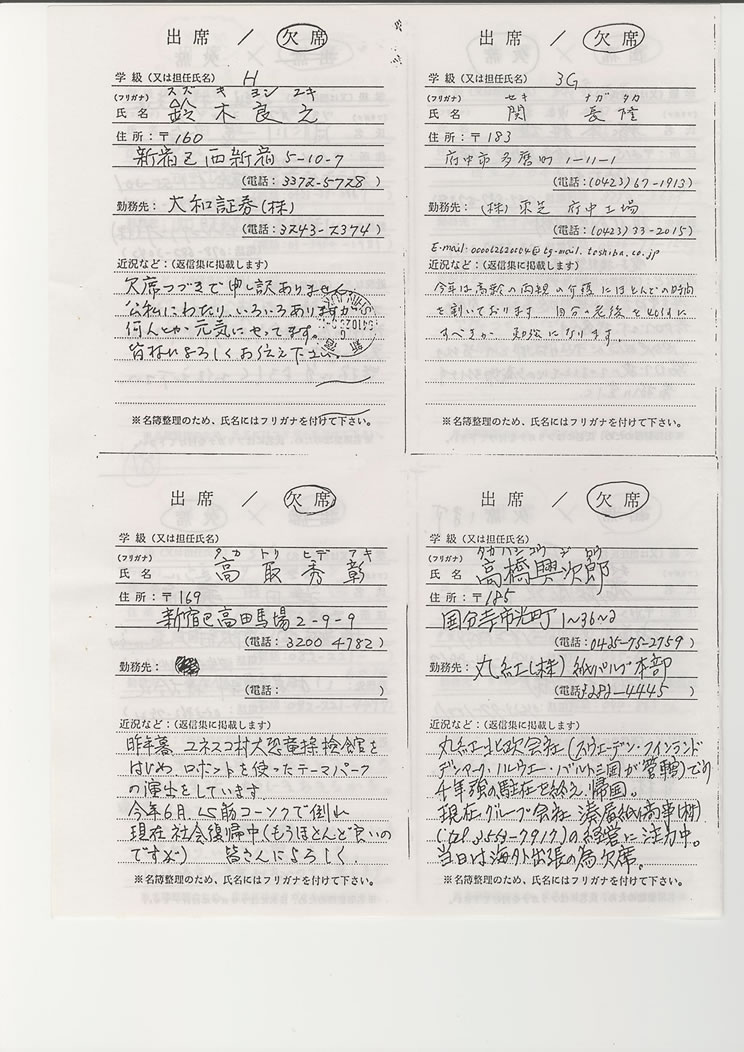 出席 / 欠席
学級（又は担任氏名） H
（フリガナ） スズ キ ヨシ ユキ
氏名 鈴木良之
住所：〒160
新宿区西新宿5-10-7
（電話：3372-5728）
勤務先：大和証券(株)
（電話：3243-7374）
近況など：（返信集に掲載します）
欠席つづきで申し訳ありません
公私にわたり、いろいろありますが
何んとか元気にやってます。
皆様によろしくお伝え下さい
※名簿整理のため、氏名にはフリガナを付けて下さい。
出席 / 欠席
学級（又は担任氏名） 3G
（フリガナ） セキ ナガ タカ
氏名 関 長隆
住所：〒183
府中市多磨町1-11-1
（電話：(0423)67-1913）
勤務先：(株)東芝 府中工場
（電話：(0423)33-2015）
E-mail: @tg-mail.toshiba.co.jp
近況など：（返信集に掲載します）
今年は高齢の両親の介護にほとんどの時間
を割いております。自分の老後を如何に
すべきか 勉強になります。
※名簿整理のため、氏名にはフリガナを付けて下さい。
出席 / 欠席
学級（又は担任氏名）
（フリガナ） タカ トリ ヒデ アキ
氏名 高取秀彰
住所：〒169
新宿区高田馬場2-9-9
（電話：3200 4782）
勤務先：
（電話： ）
近況など：（返信集に掲載します）
昨年暮 ユネスコ村大恐竜探検館を
はじめ、ロボットを使ったテーマパーク
の演出をしています。
今年6月、心筋コーソクで倒れ
現在社会復帰中(もうほとんど良いの
ですが) 皆さんによろしく。
※名簿整理のため、氏名にはフリガナを付けて下さい。
出席 / 欠席
学級（又は担任氏名）
（フリガナ） タカハシ コウ ジ ロウ
氏名 高橋興次郎
住所：〒185
国分寺市光町1~36~2
（電話：0425-75-2759）
勤務先：丸紅(株)紙パルプ本部
（電話：3282-4445）
近況など：（返信集に掲載します）
丸紅北欧会社(スウェーデン・フィンランド
デンマーク・ノルウェー・バルト三国が管轄)で
年強の駐在を終え、帰国。
現在グループ会社 湊屋紙商事(株)
(tel. 3553-7917)の経営に注力中。
当日は海外出張の為欠席。
※名簿整理のため、氏名にはフリガナを付けて下さい。